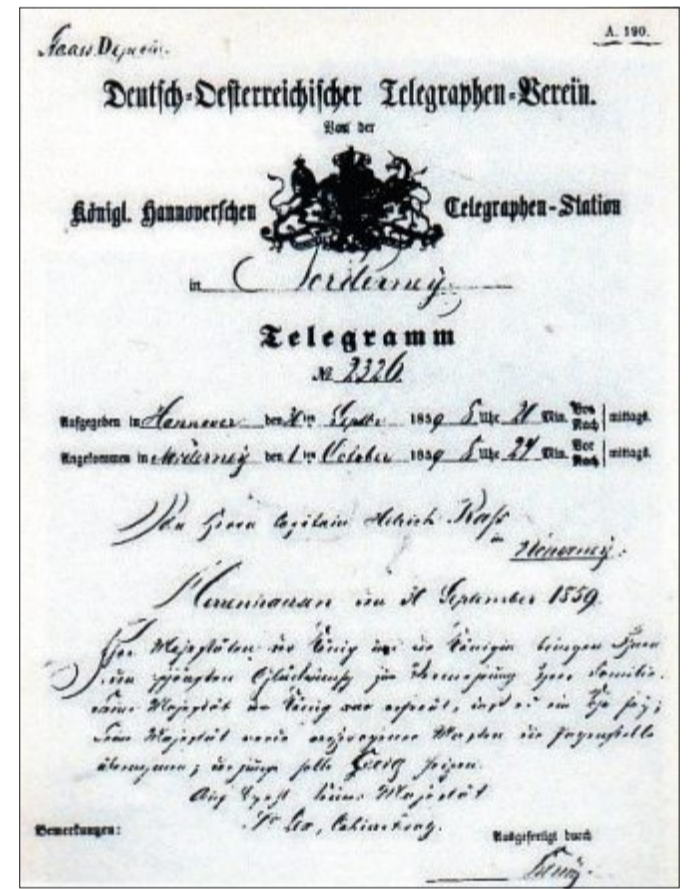 Staats Depesche.
A. 190.
Deutsch-Oesterreichischer Telegraphen-Verein.
Von der
Königl. Hannoverschen Telegraphen-Station
in Norderney.
Telegramm
№ 2326.
Aufgegeben in Hannover den 30ten Septbr 1859 5 Uhr Min. Vor Nach mittags.
Angekommen in Norderney den 1ten October 1859 5 Uhr 24 Min. Vor Nach mittags.
Herrn Capitain Raß
in
Norderney.
Herrenhausen den September 1859.
Majestäten der König und die Königin bringen Ihnen
Glückwunsch zur Vermehrung Ihrer Familie.
Seine Majestät der König war erfreut, daß es ein
Seine Majestät die Pathenstelle
übernehmen; der Junge solle Georg heißen.
Auf Seiner Majestät
Lex, Cabinetsrath.
Bemerkungen:
Ausgefertigt durch